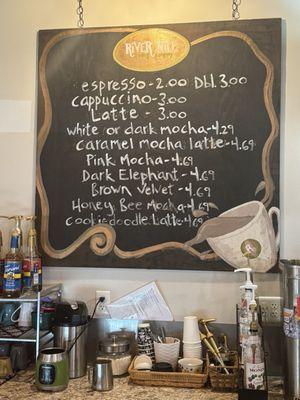 RIVER NILE
espresso-2.00 Dbl.3.00
cappuccino-3.00
Latte - 3.00
white or dark mocha-4.29
caramel mocha latte-4.69
Pink Mocha-4.69
Dark Elephant-4.69
Brown Velvet-4.69
Honey Bee Mocha-4.69
cookiedoodle Latte 4.69